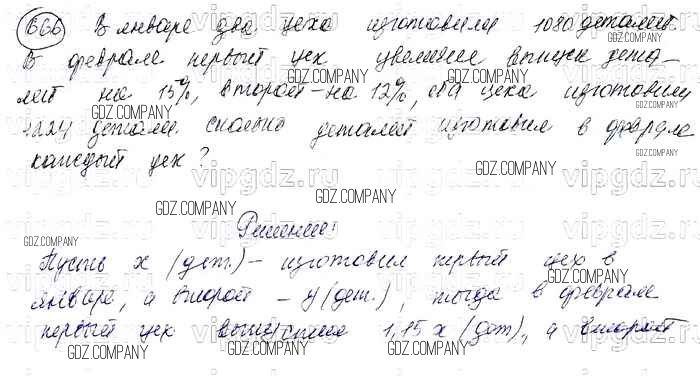 666 В январе два цеха изготовили 1080 деталей.
В феврале первый цех увеличил выпуск дета-
лей на 15%, второй – на 12%, оба цеха изготовили
1224 детали. Сколько деталей изготовил в феврале
каждый цех?
Решение:
Пусть x (дет.) – изготовил первый цех в
январе, а второй – y (дет.), тогда в феврале
первый цех выпустил 1,15x (дет), а второй
GDZ.COMPANY
vipgdz.ru